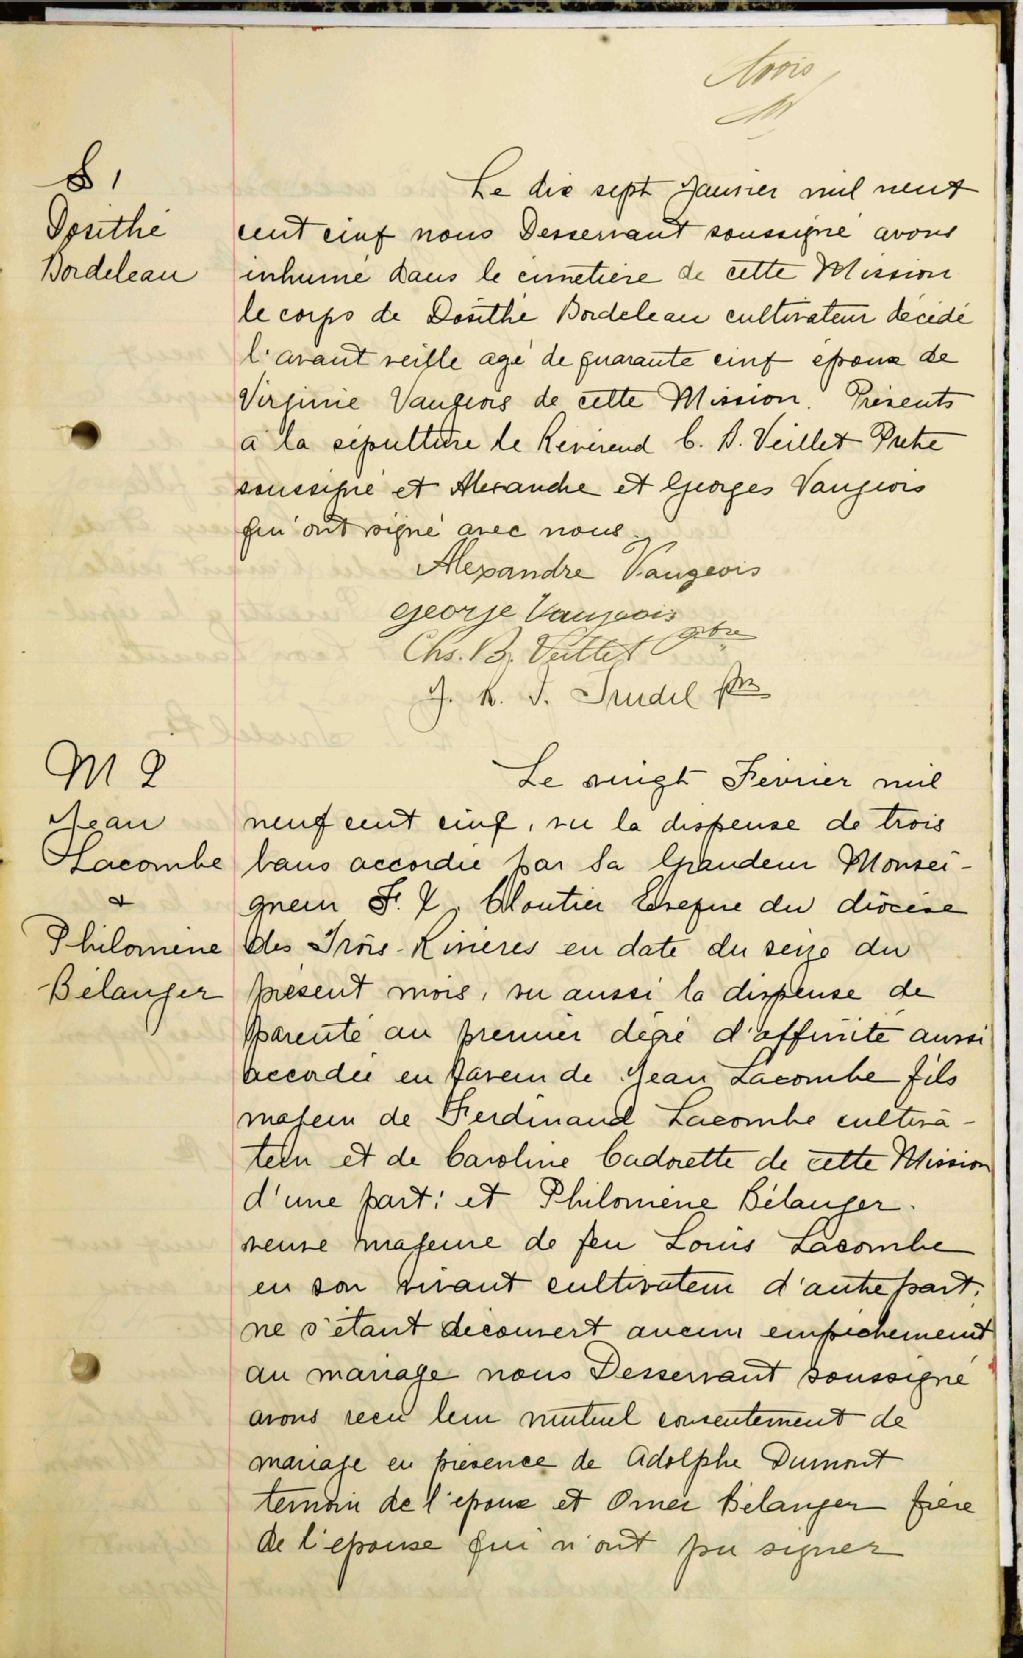 trois
S 1
Dosithé
Bordeleau
Le dix sept Janvier mil neuf
cent cinq nous Desservant soussigné avons
inhumé dans le cimetière de cette Mission
le corps de Dosithé Bordeleau cultivateur décédé
l'avant veille agé de quarante cinq époux de
Virginie Vaugeois de cette Mission. Présents
a la sépulture le Révérend C. B. Veillet Prêtre
soussigné et Alexandre et Georges Vaugeois
qui ont signé avec nous.
Alexandre Vaugeois
George Vaugeois
Chs. B. Veillet ptre
J. R. J. Trudel ptre
M 2
Jean
Lacombe
&
Philomène
Bélanger
Le vingt Février mil
neuf cent cinq, vu la dispense de trois
bans accordée par Sa Grandeur Monsei-
gneur F. X. Cloutier Evêque du diocèse
des Trois-Rivières en date du seize du
présent mois, vu aussi la dispense de
parenté au premier dégré d'affinité aussi
accordée en faveur de Jean Lacombe fils
majeur de Ferdinand Lacombe cultiva-
teur et de Caroline Cadorette de cette Mission
d'une part: et Philomène Bélanger.
veuve majeure de feu Louis Lacombe
en son vivant cultivateur d'autre part;
ne s'étant découvert aucun empêchement
au mariage nous Desservant soussigné
avons recu leur mutuel consentement de
mariage en présence de Adolphe Dumont
temoin de l'époux et Omer Bélanger frère
de l'epouse qui n'ont pu signer